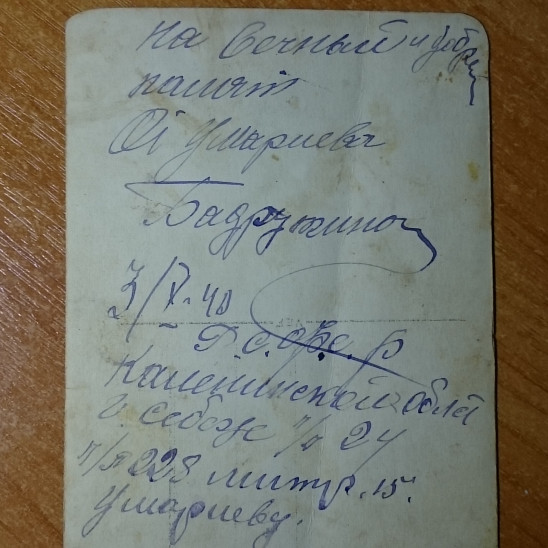 на вечный и добрый
памят
От Умариева
Бадружина
3/V-40
Р.С.Ф.С.Р
Каленинской обла
г. Себеж п/я 24
п/я 228 литр. 15.
Умариеву.